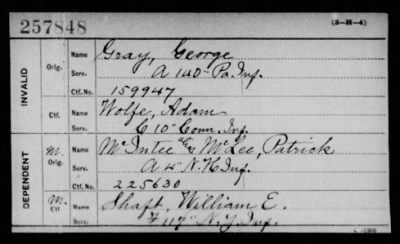 257848
(3-H-4)
INVALID
Orig.
Name Gray, George
Serv. A 140" Pa. Inf.
Ctf. No. 159947
Ctf.
Name Wolfe, Adam
Serv. C 10" Conn. Inf.
DEPENDENT
M. Orig.
Name McIntee or McLee, Patrick
Serv. A 4 N.H. Inf.
Ctf. No. 225630
M. Ctf.
Name Shaft, William E.
Serv. F 117" N.Y. Inf.